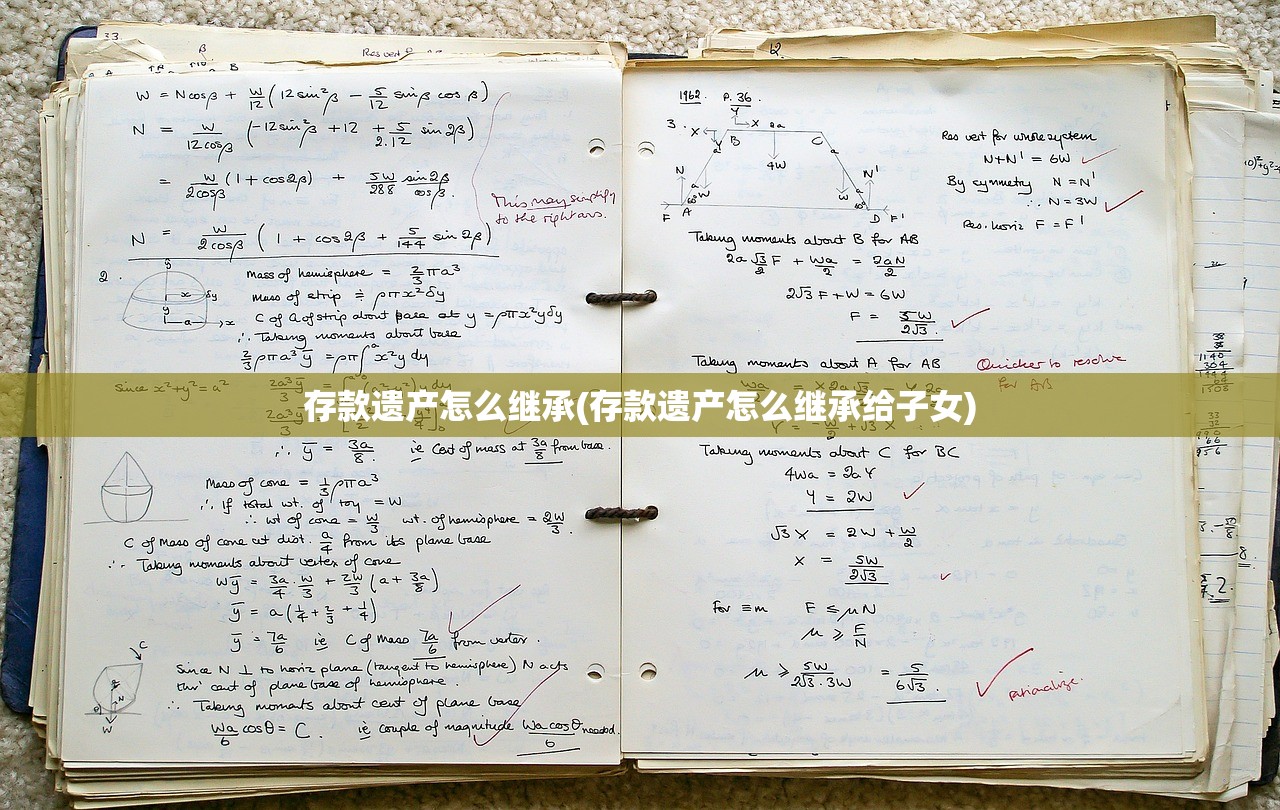 33
Res vert
W = Ncosβ + W/12 (12 sin²β − 5/12 sinβ cosβ)
N = W/12cosβ (−12sin²β + 12 + 5/2.12 sin 2β)
= W/2cosβ (1 + cos2β) + 5W/288 sin2β/cosβ.
This may simplify
to the right ans.
N = W/2cosβ (1 + cos2β + 5/144 sin 2β)
2.
Mass of hemisphere = 2/3 πa³
mass of strip ≑ ρπx²δy
C of G of strip about base at y = ρπx²yδy
∴ Taking moments about base
2/3 ρπa³ȳ = ρπ∫x²y dy
Since x²+y² = a²
存款遗产怎么继承(存款遗产怎么继承给子女)
∴ ȳ = 3a/8. ie Cent of mass at 3a/8 from base.
Mass of cone = 1/3 ρπa³
∴ If total wt. of toy = W
∴ wt of cone = W/3 wt. of hemisphere = 2W/3.
C of Mass of cone at dist. a/4 from its plane base
∴ Taking moments about vertex of cone
Wȳ = 3a/4 . W/3 + 2W/3 (a + 3a/8)
ȳ = a(1/4 + 2/3 + 1/4)
ȳ = 7a/6 ie C of Mass 7a/6 from vertex.
Since N ⊥ to horiz plane (tangent to hemisphere) N acts
thro' cent of plane base of hemisphere.
∴ Taking moments about cent of plane base
Wa/6 cosθ = C. ie couple of magnitude Wa cosθ/6 needed.
1962. P. 36.
3.
Res vert for whole system
N+N' = 6W
By symmetry N = N'
∴ N = 3W
Res. horiz F = F'
Taking moments about B for AB
2a √3/2 F + Wa/2 = 2aN/2
2√3 F + W = 6W
F = 5W/2√3.
Taking moments about A for AB
Quicker to resolve
for AB
Taking moments about C for BC
4Wa = 2aY
Y = 2W
√3 X = 2W + W/2
X = 5W/2√3
For ≡m F ≤ μN
μ ≥ F/N
μ ≥ 5W/2√3.3W = 5/6√3.
rationalize.